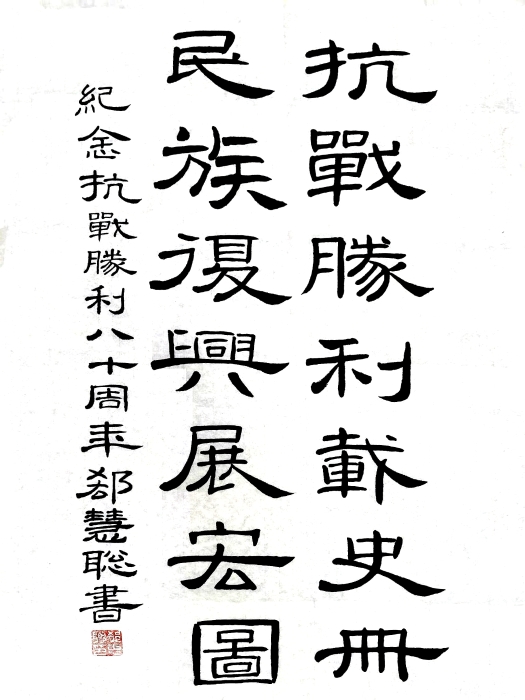 抗戰勝利載史冊
民族復興展宏圖
紀念抗戰勝利八十周年 郄慧聡書